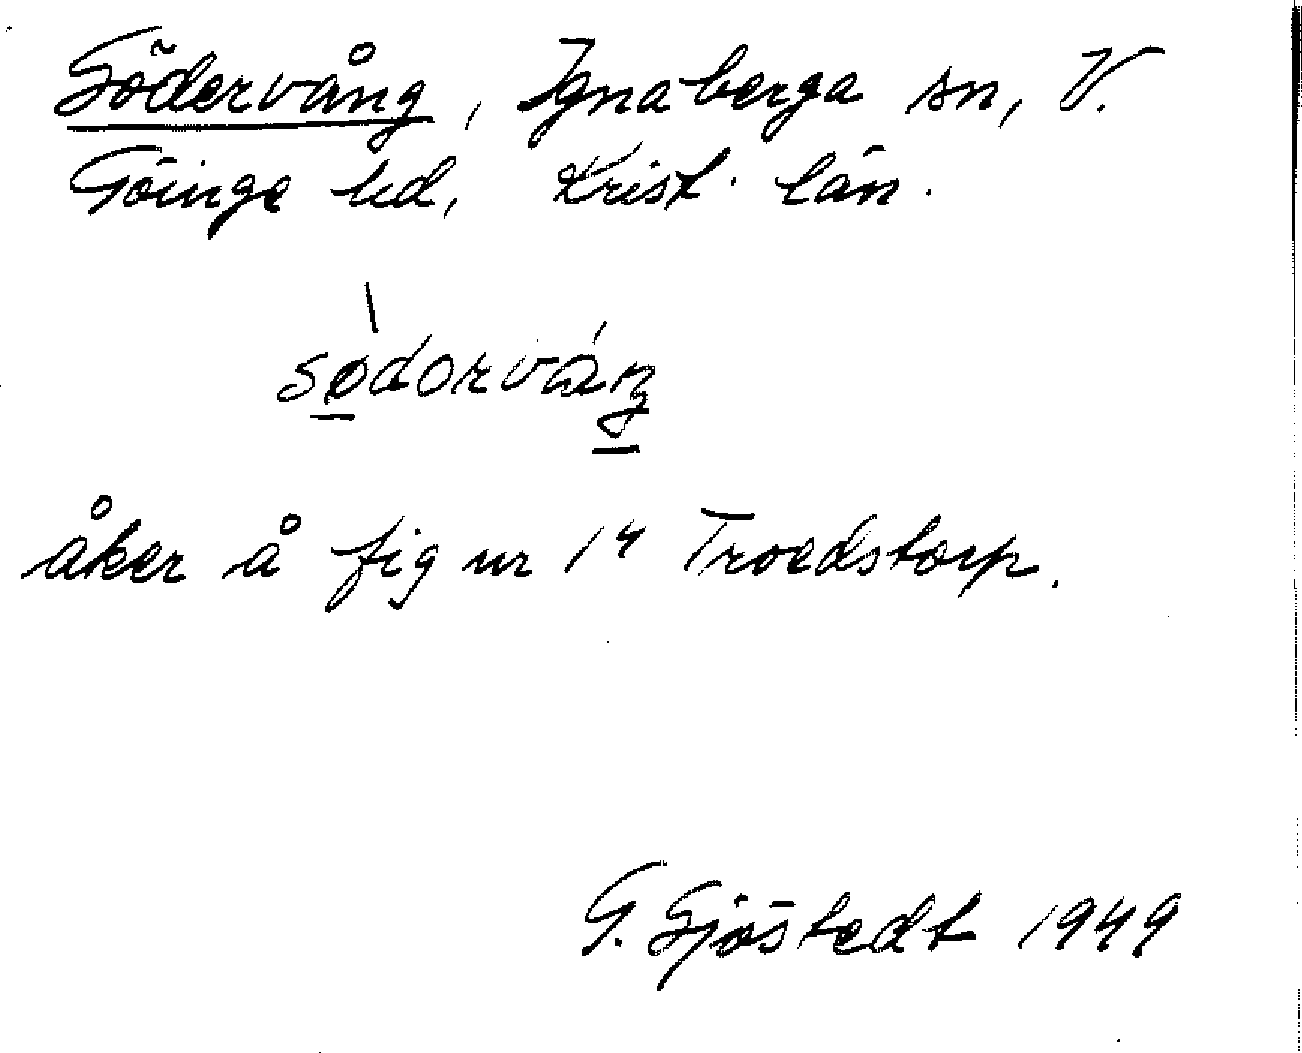 Södervång, Ignaberga sn, V.
Göinge hd, Krist. län.
sø̀dorváŋ
åker å fig nr 14 Troedstorp.
G. Sjöstedt 1949